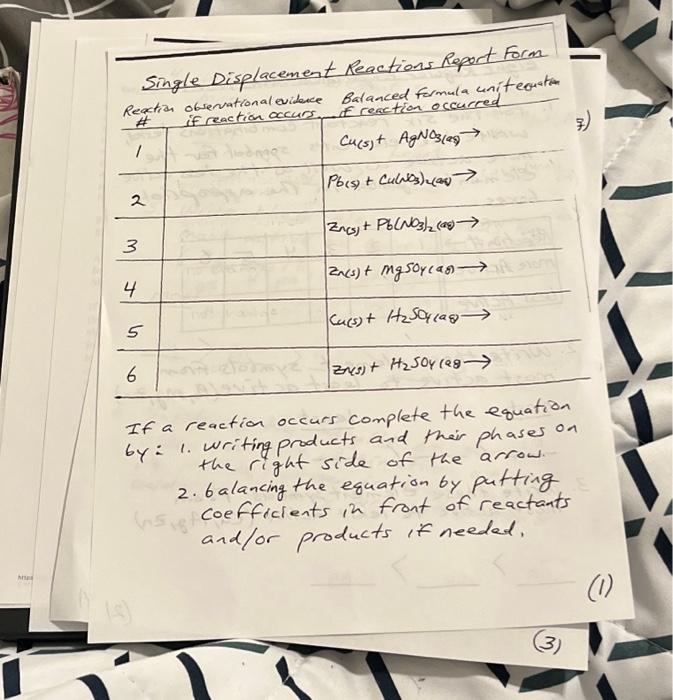 Single Displacement Reactions Report Form
Reaction observational evidence Balanced formula unit equation
# if reaction occurs if reaction occurred
1 Cu(s) + AgNO3(aq) →
2 Pb(s) + Cu(NO3)2(aq) →
3 Zn(s) + Pb(NO3)2(aq) →
4 Zn(s) + MgSO4(aq) →
5 Cu(s) + H2SO4(aq) →
6 Zn(s) + H2SO4(aq) →
If a reaction occurs complete the equation
by: 1. writing products and their phases on
the right side of the arrow.
2. balancing the equation by putting
coefficients in front of reactants
and/or products if needed.
(1)
(3)